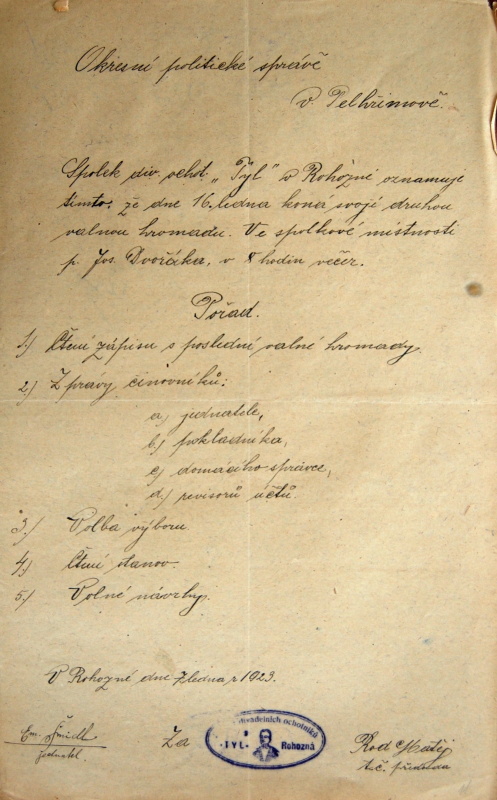 Okresní politické správě
v Pelhřimově.
Spolek div. ochot. „Tyl" v Rohozné oznamuje
tímto, že dne 16. ledna koná svoji druhou
valnou hromadu. Ve spolkové místnosti
p. Jos. Dvořáka, v 8 hodin večer.
Pořad.
1.) Čtení zápisu s poslední valné hromady.
2.) Zprávy činovníků:
a.) jednatele,
b.) pokladníka,
c.) domácího správce,
d.) revisorů účtů.
3.) Volba výboru.
4.) Čtení stanov.
5.) Volné návrhy.
V Rohozné dne 7 ledna r 1923.
Em. Šmidl
jednatel.
Za
divadelních ochotníků
"TYL" Rohozná
Rod Matěj
t.č. předseda